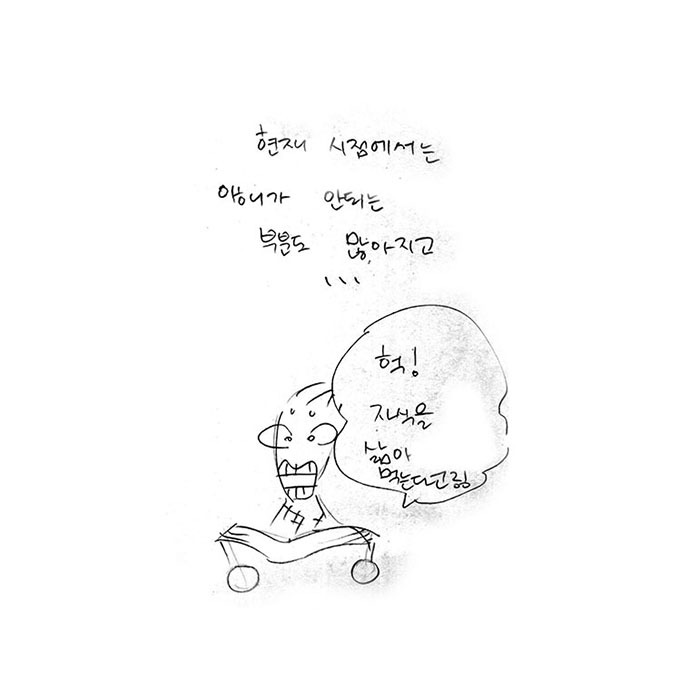 현재 시점에서는
이해가 안되는
부분도 많아지고
...
헉!
자식을
삶아
먹는다고림